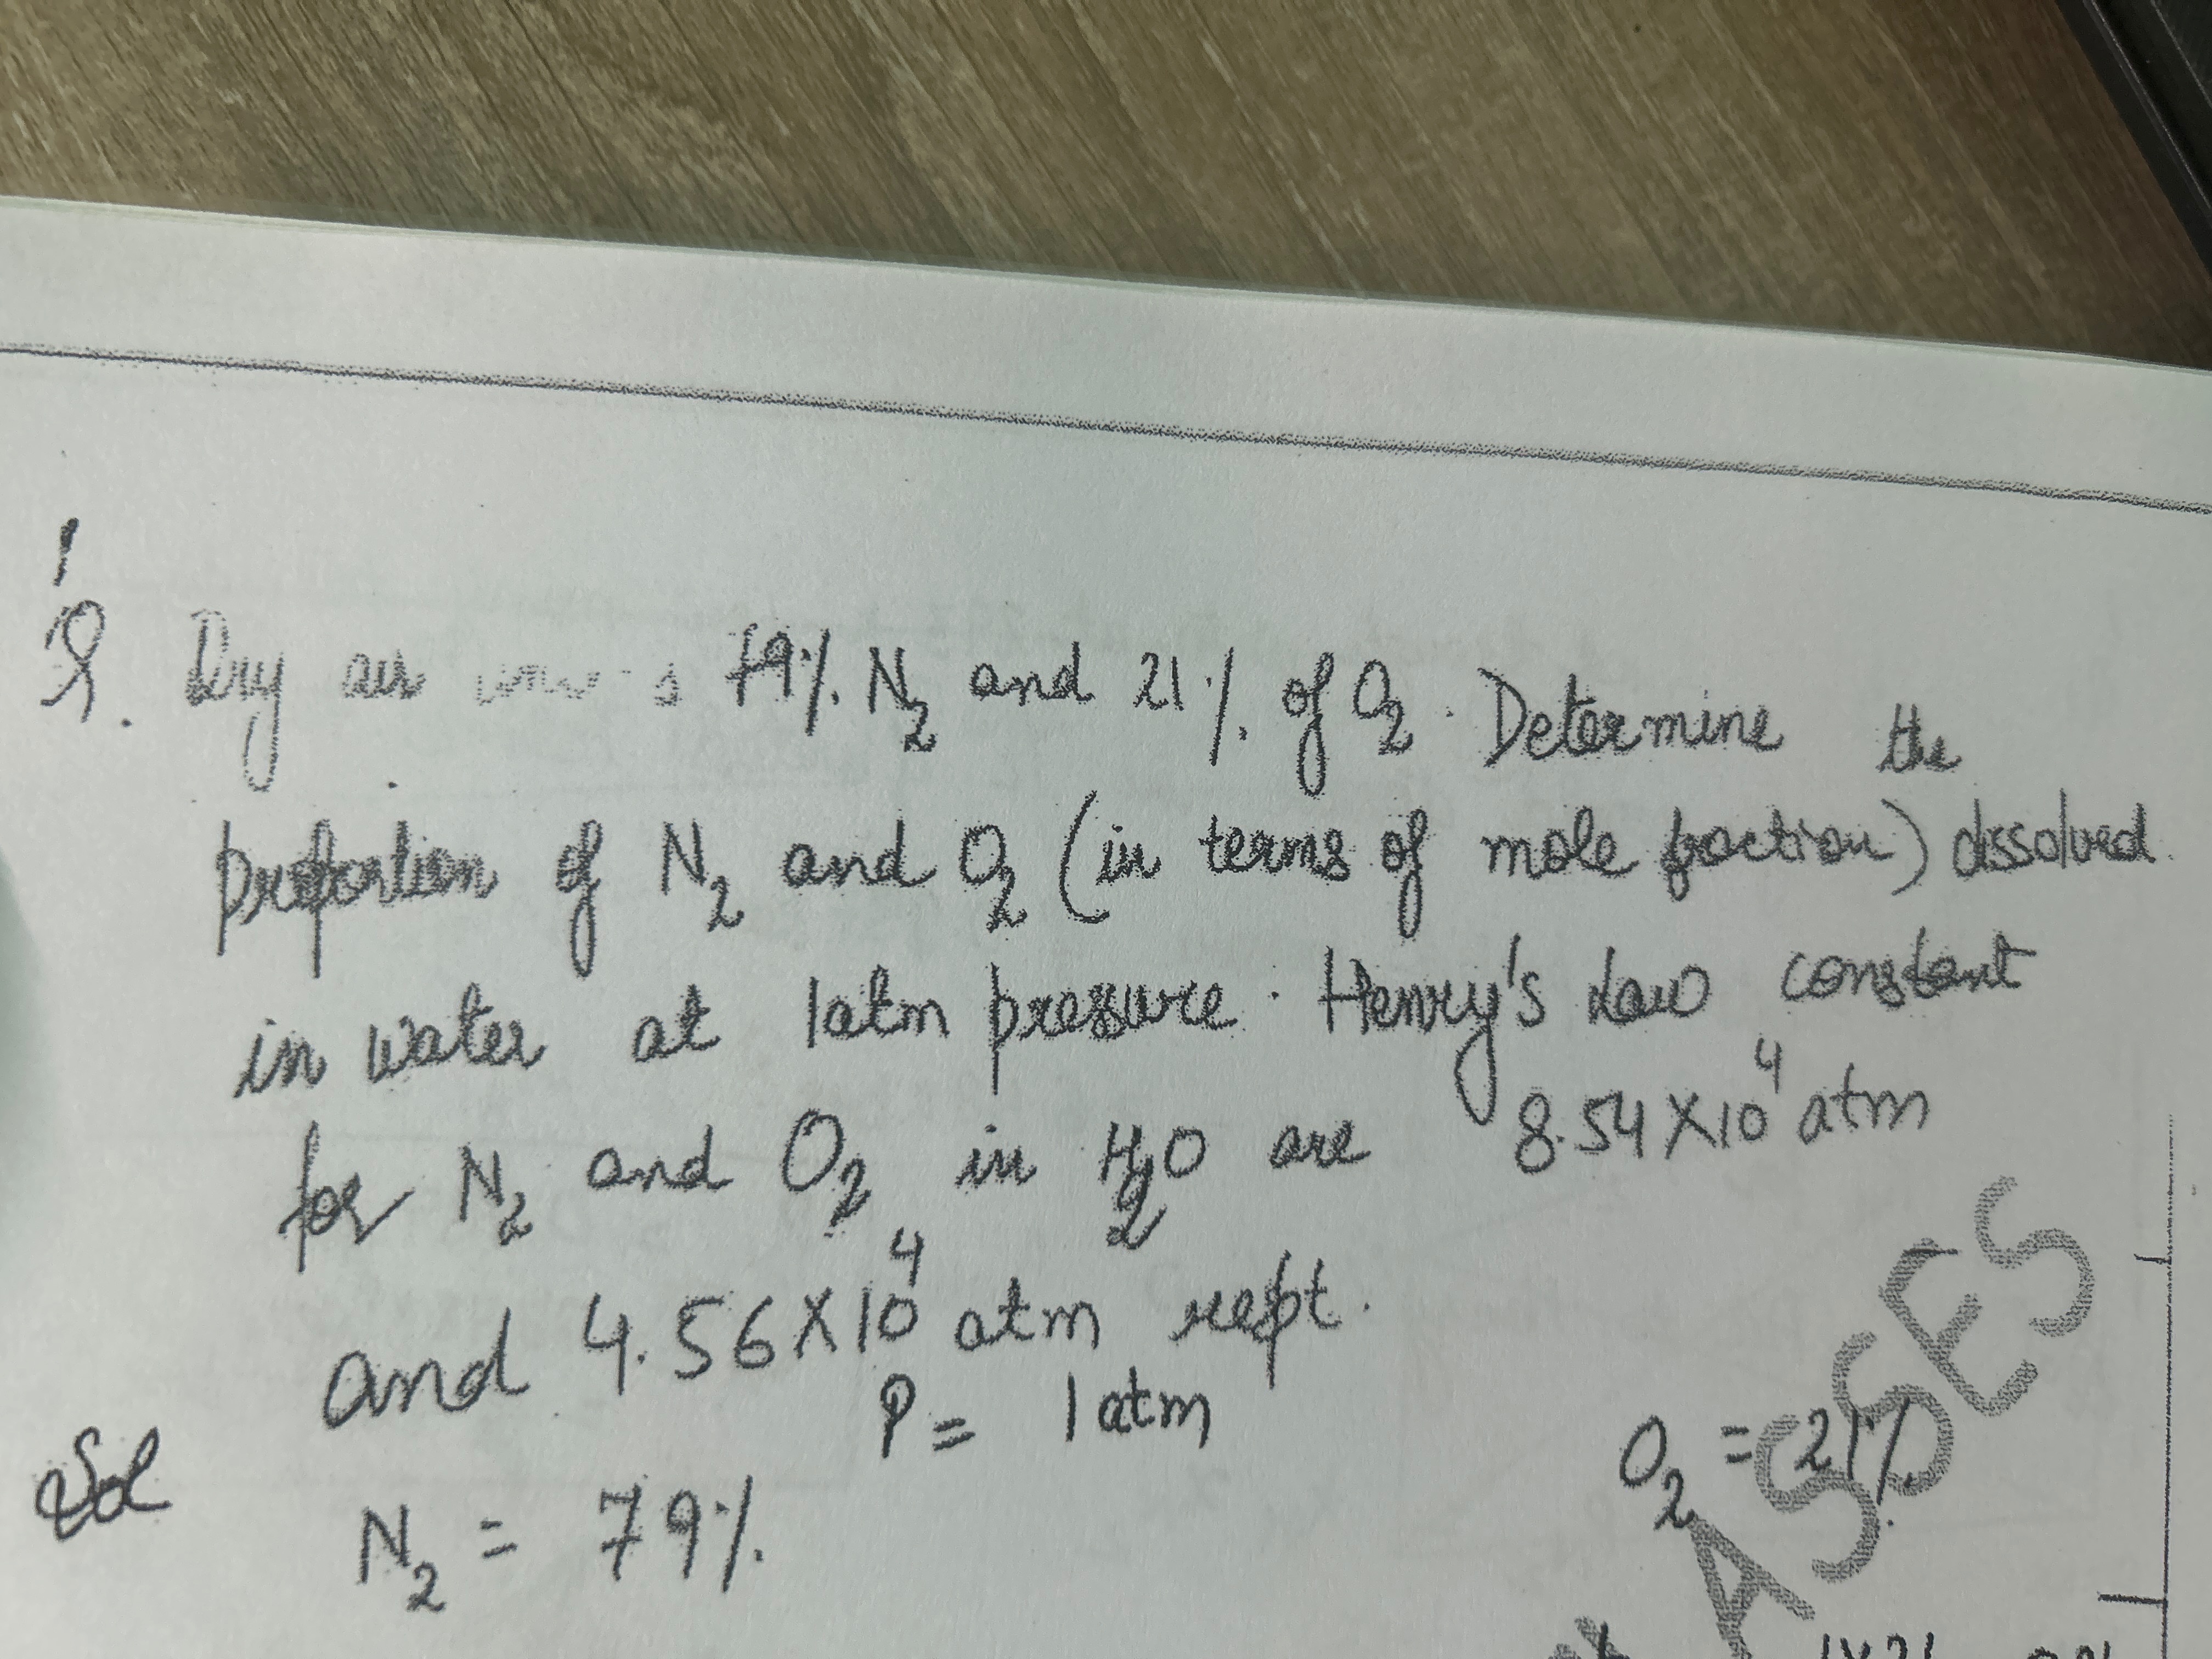 1
Q. Dry air 79% N2 and 21% of O2. Determine the
proportion of N2 and O2 (in terms of mole fraction) dissolved
in water at 1atm pressure. Henry's Law constant
for N2 and O2 in H2O are 8.54 X 10^4 atm
and 4.56 X 10^4 atm rept.
P = 1 atm
Sol N2 = 79% O2 = 21%
ASSES